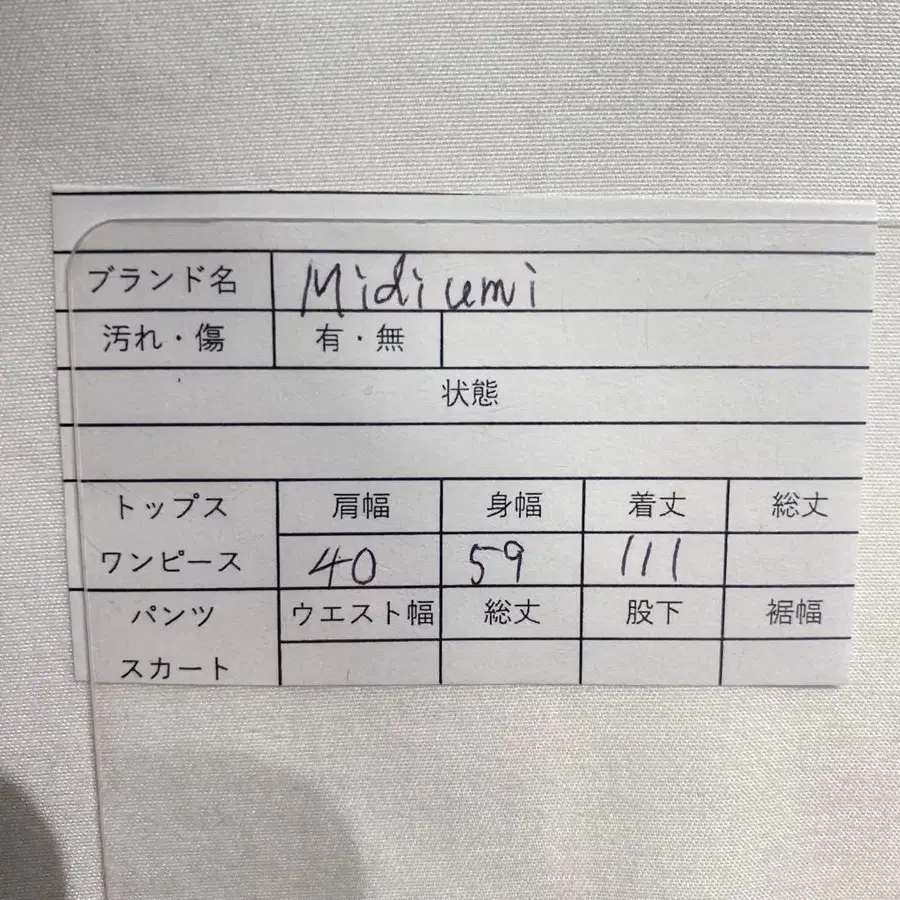 ブランド名 Midiumi
汚れ・傷 有・無
状態
トップス 肩幅 身幅 着丈 総丈
ワンピース 40 59 111
パンツ ウエスト幅 総丈 股下 裾幅
スカート